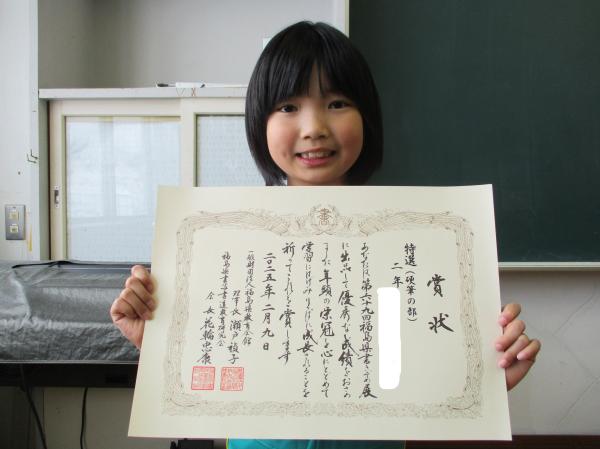 賞状
特選(硬筆の部)
二年
あなたは第六十九回福島県書きぞめ展
に出品して優秀な成績をおさめ
ました年頭の栄冠を心にとめて
学習にはげみりっぱに成長されることを
祈ってこれを賞します
二〇二五年二月九日
一般財団法人福島県教育会館
理事長 瀬戸禎子
福島県書写書道教育研究会
会長 花輪忠康
書